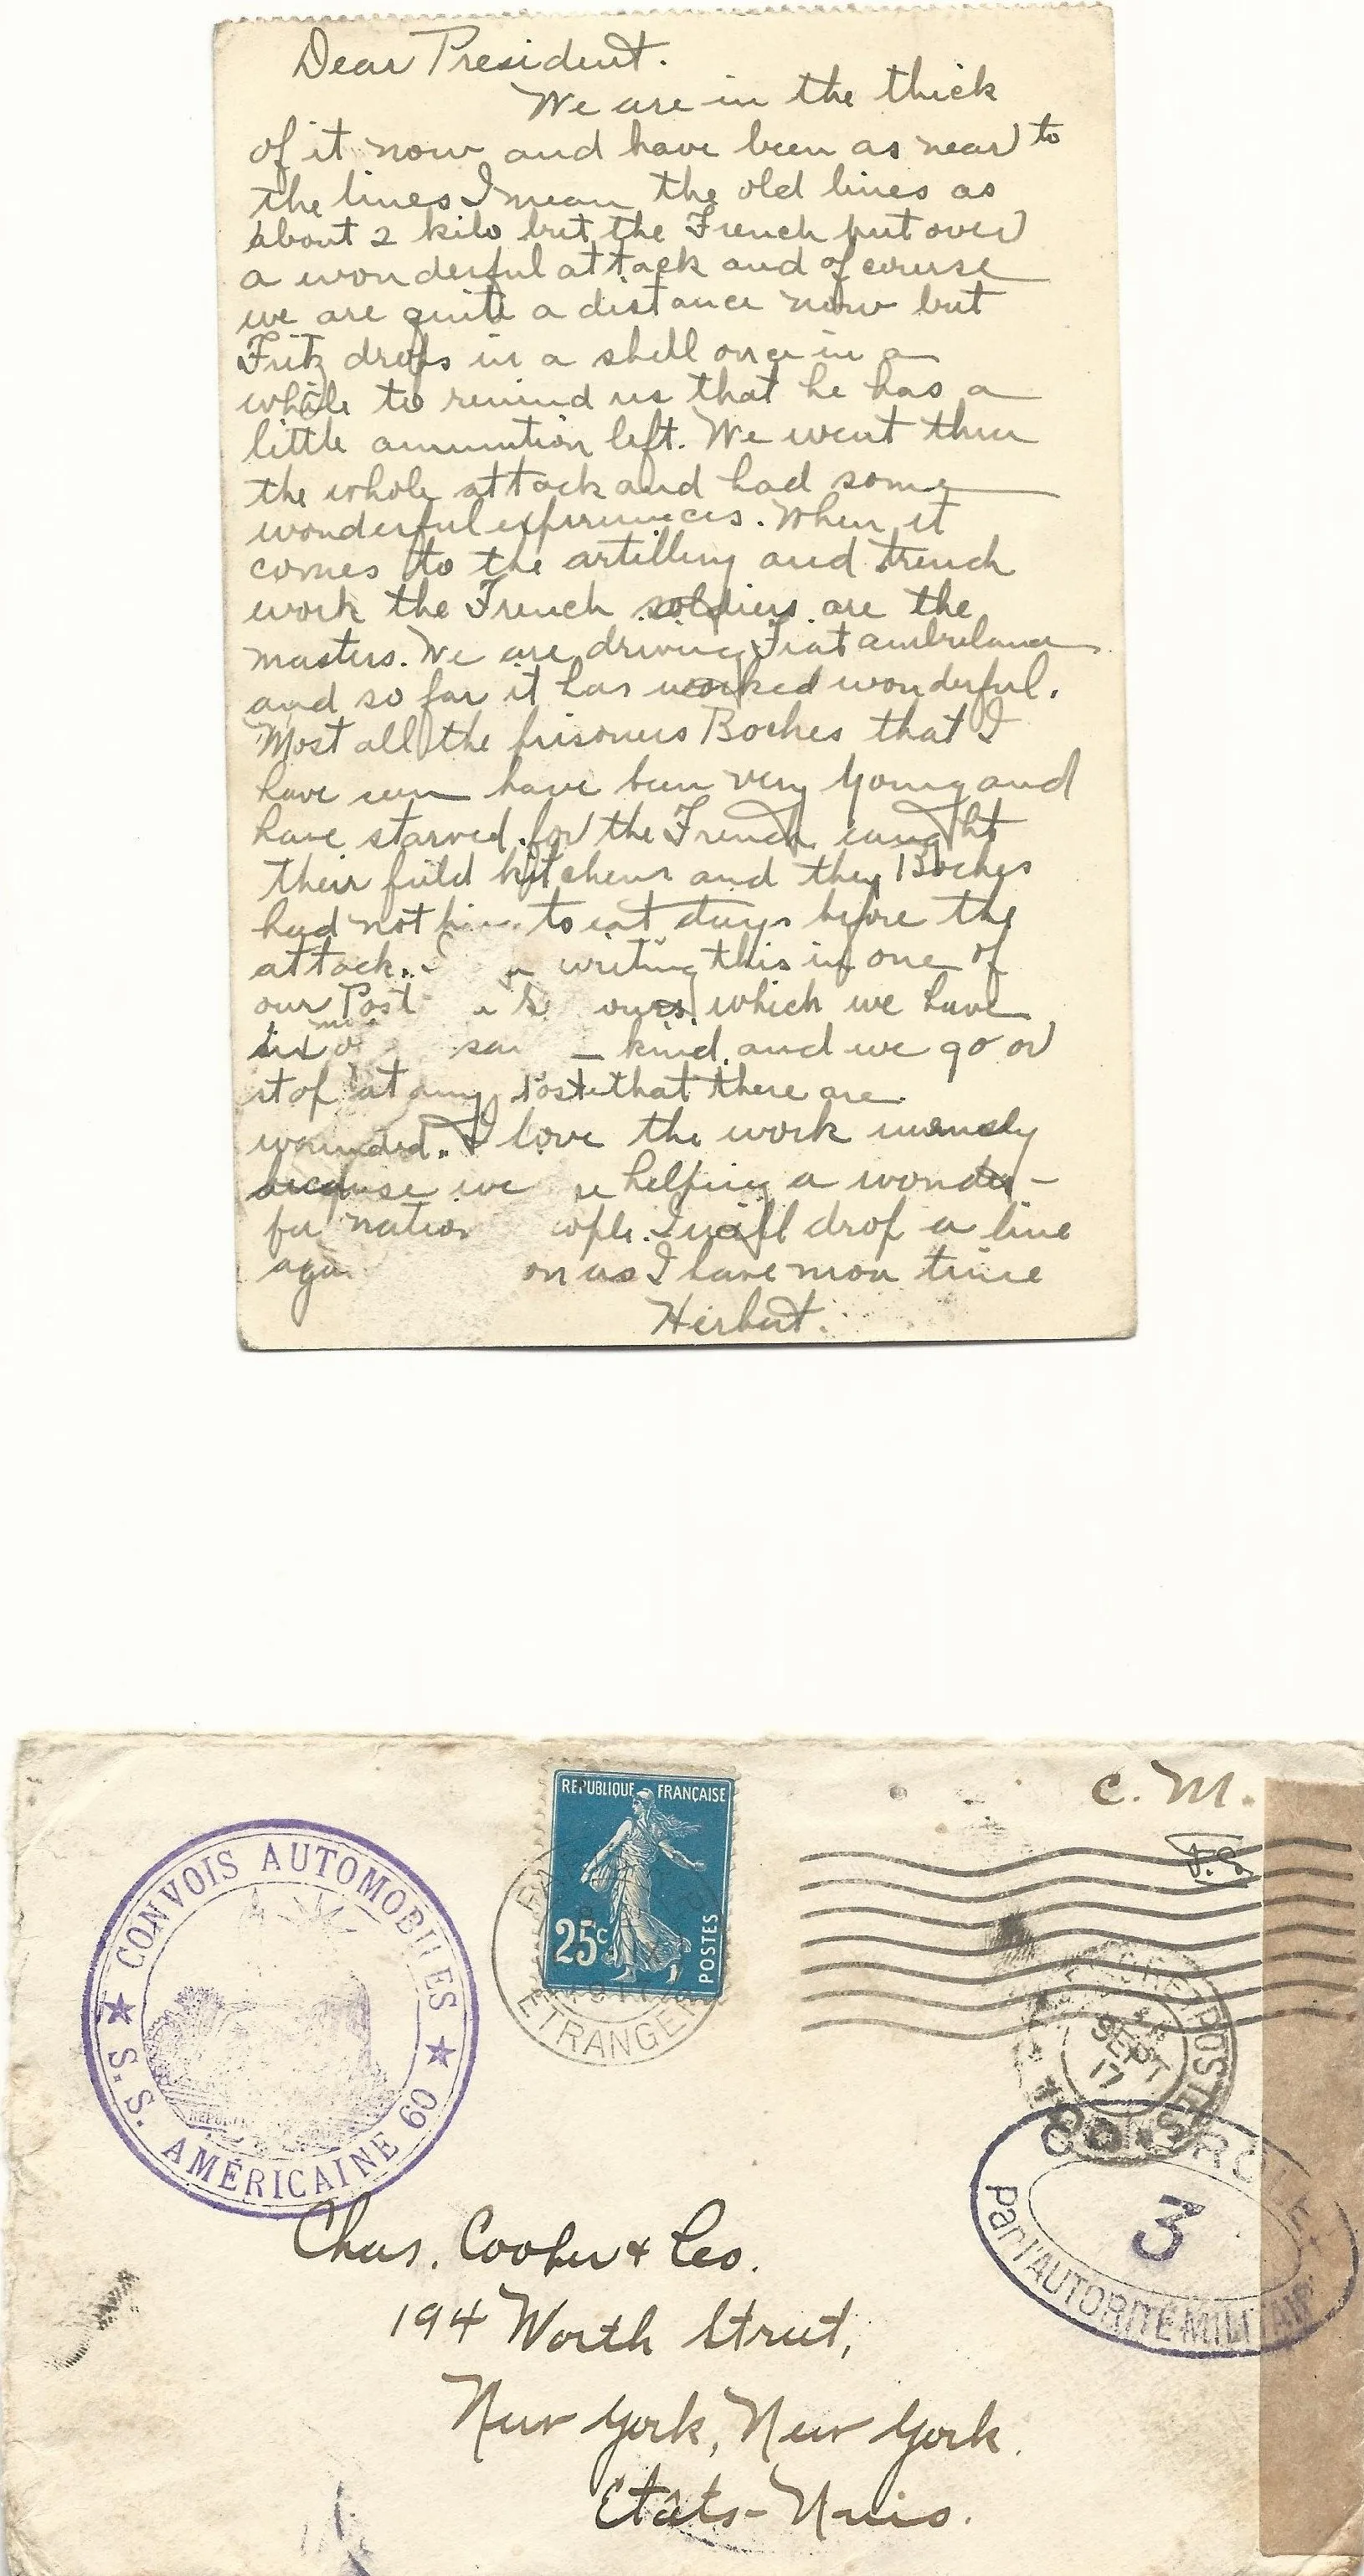 Dear President.
We are in the thick
of it now and have been as near to
the lines I mean the old lines as
about 2 kilo but the French put over
a wonderful attack and of course
we are quite a distance now but
Fritz drops in a shell once in a
while to remind us that he has a
little ammution left. We went thru
the whole attack and had some
wonderful experiences. When it
comes to the artillery and trench
work the French soldiers are the
masters. We are driving Fiat
and so far it has worked wonderful.
Most all the prisoners Boches that I
have seen have been very young and
have starved for the French caught
their field kitchens and they Boches
had to eat days before the
attack. writing this in one of
our Post ours which we have
six kind and we go or
stop at any Poste that there are
wounded. I love the work
because we helping a wonder-
ful drop a line
as I have more time
Herbert.
C. M.
REPUBLIQUE FRANÇAISE
25c
POSTES
CONVOIS AUTOMOBILES
S.S. AMÉRICAINE 60
ETRANGER
SEPT
17
CONTROLE
3
Par l'AUTORITÉ MILITAIRE
Chas. Cooper & Co.
194 Worth Street,
New York, New York.
Etats-Unis.